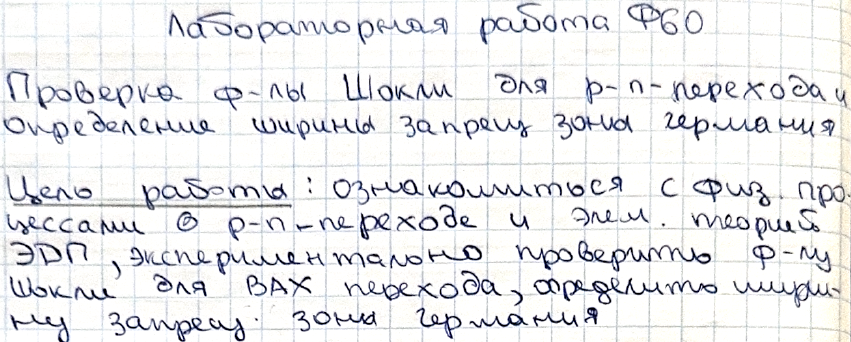 Лабораторная работа Ф60
Проверка ф-лы Шокли для р-п-перехода и
определение ширины запрещ зоны германия
Цель работы: ознакомиться с физ. про-
цессами в р-п-переходе и элем. теорией
ЭДП, экспериментально проверить ф-лу
Шокли для ВАХ перехода, определить шири-
ну запрещ. зоны германия